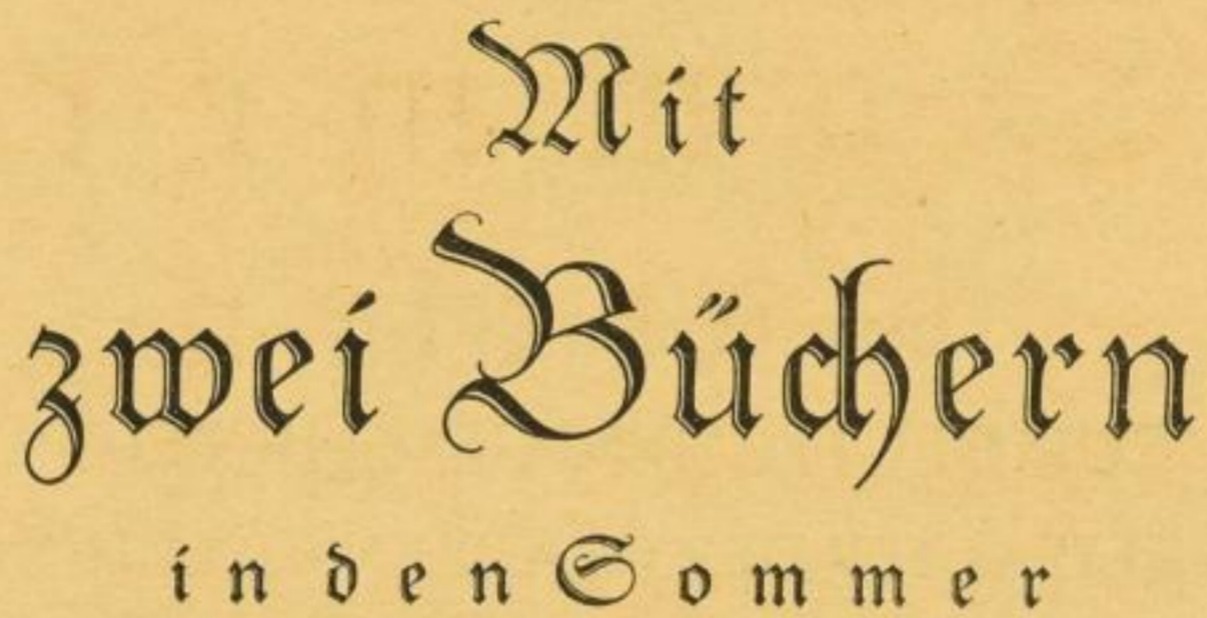 Mit
zwei Büchern
in den Sommer